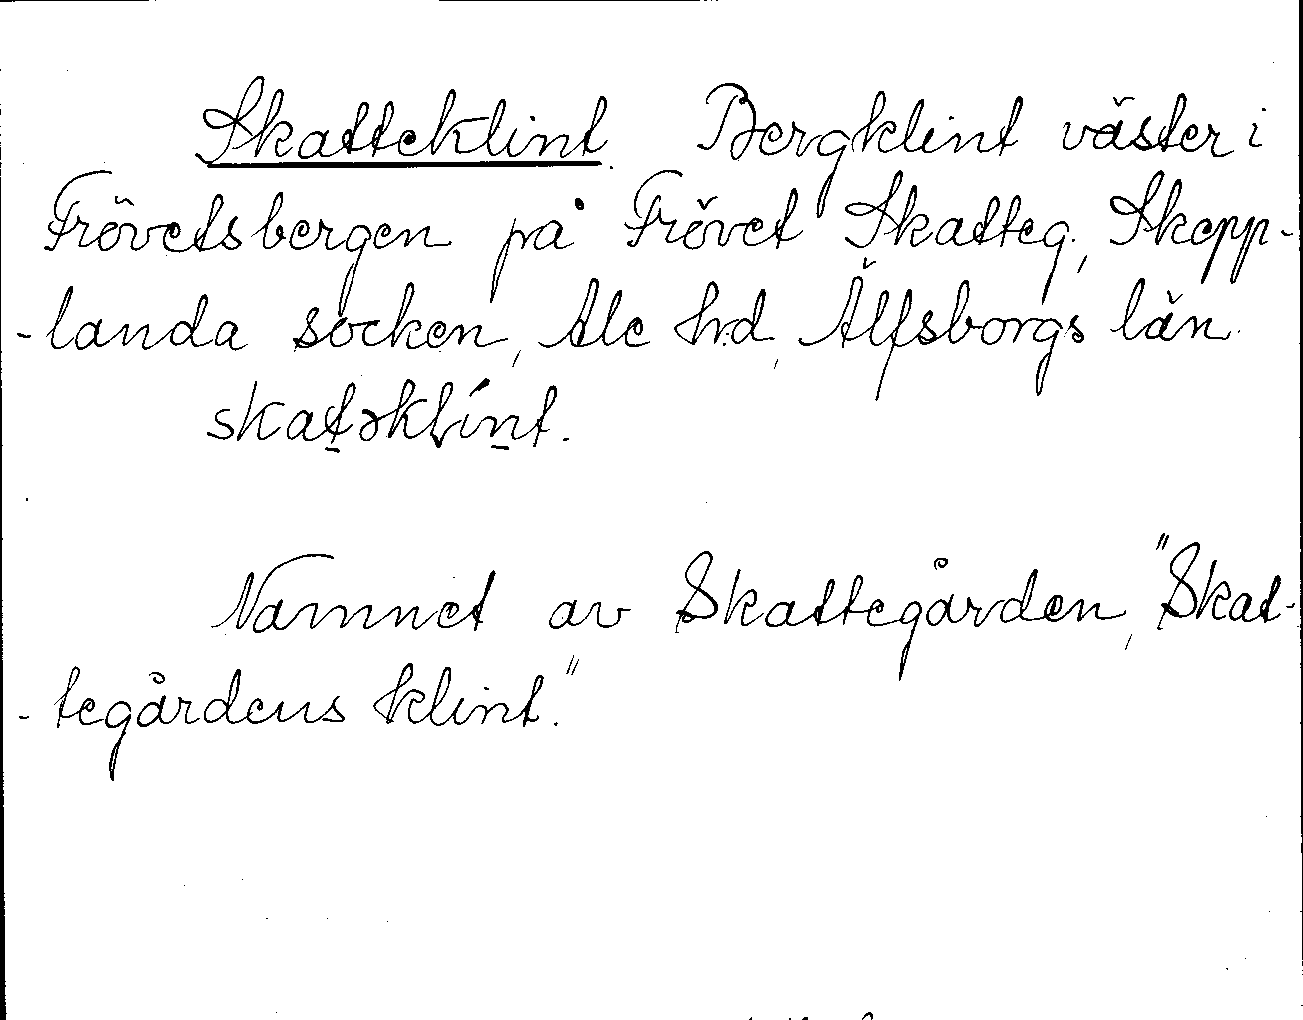 Skatteklint. Bergklint väster i
Frövetsbergen på Frövet Skatteg., Skepp-
-landa socken, Ale hd, Älfsborgs län.
skat̠əklín̠t.
Namnet av Skattegården, "Skat-
-tegårdens klint."